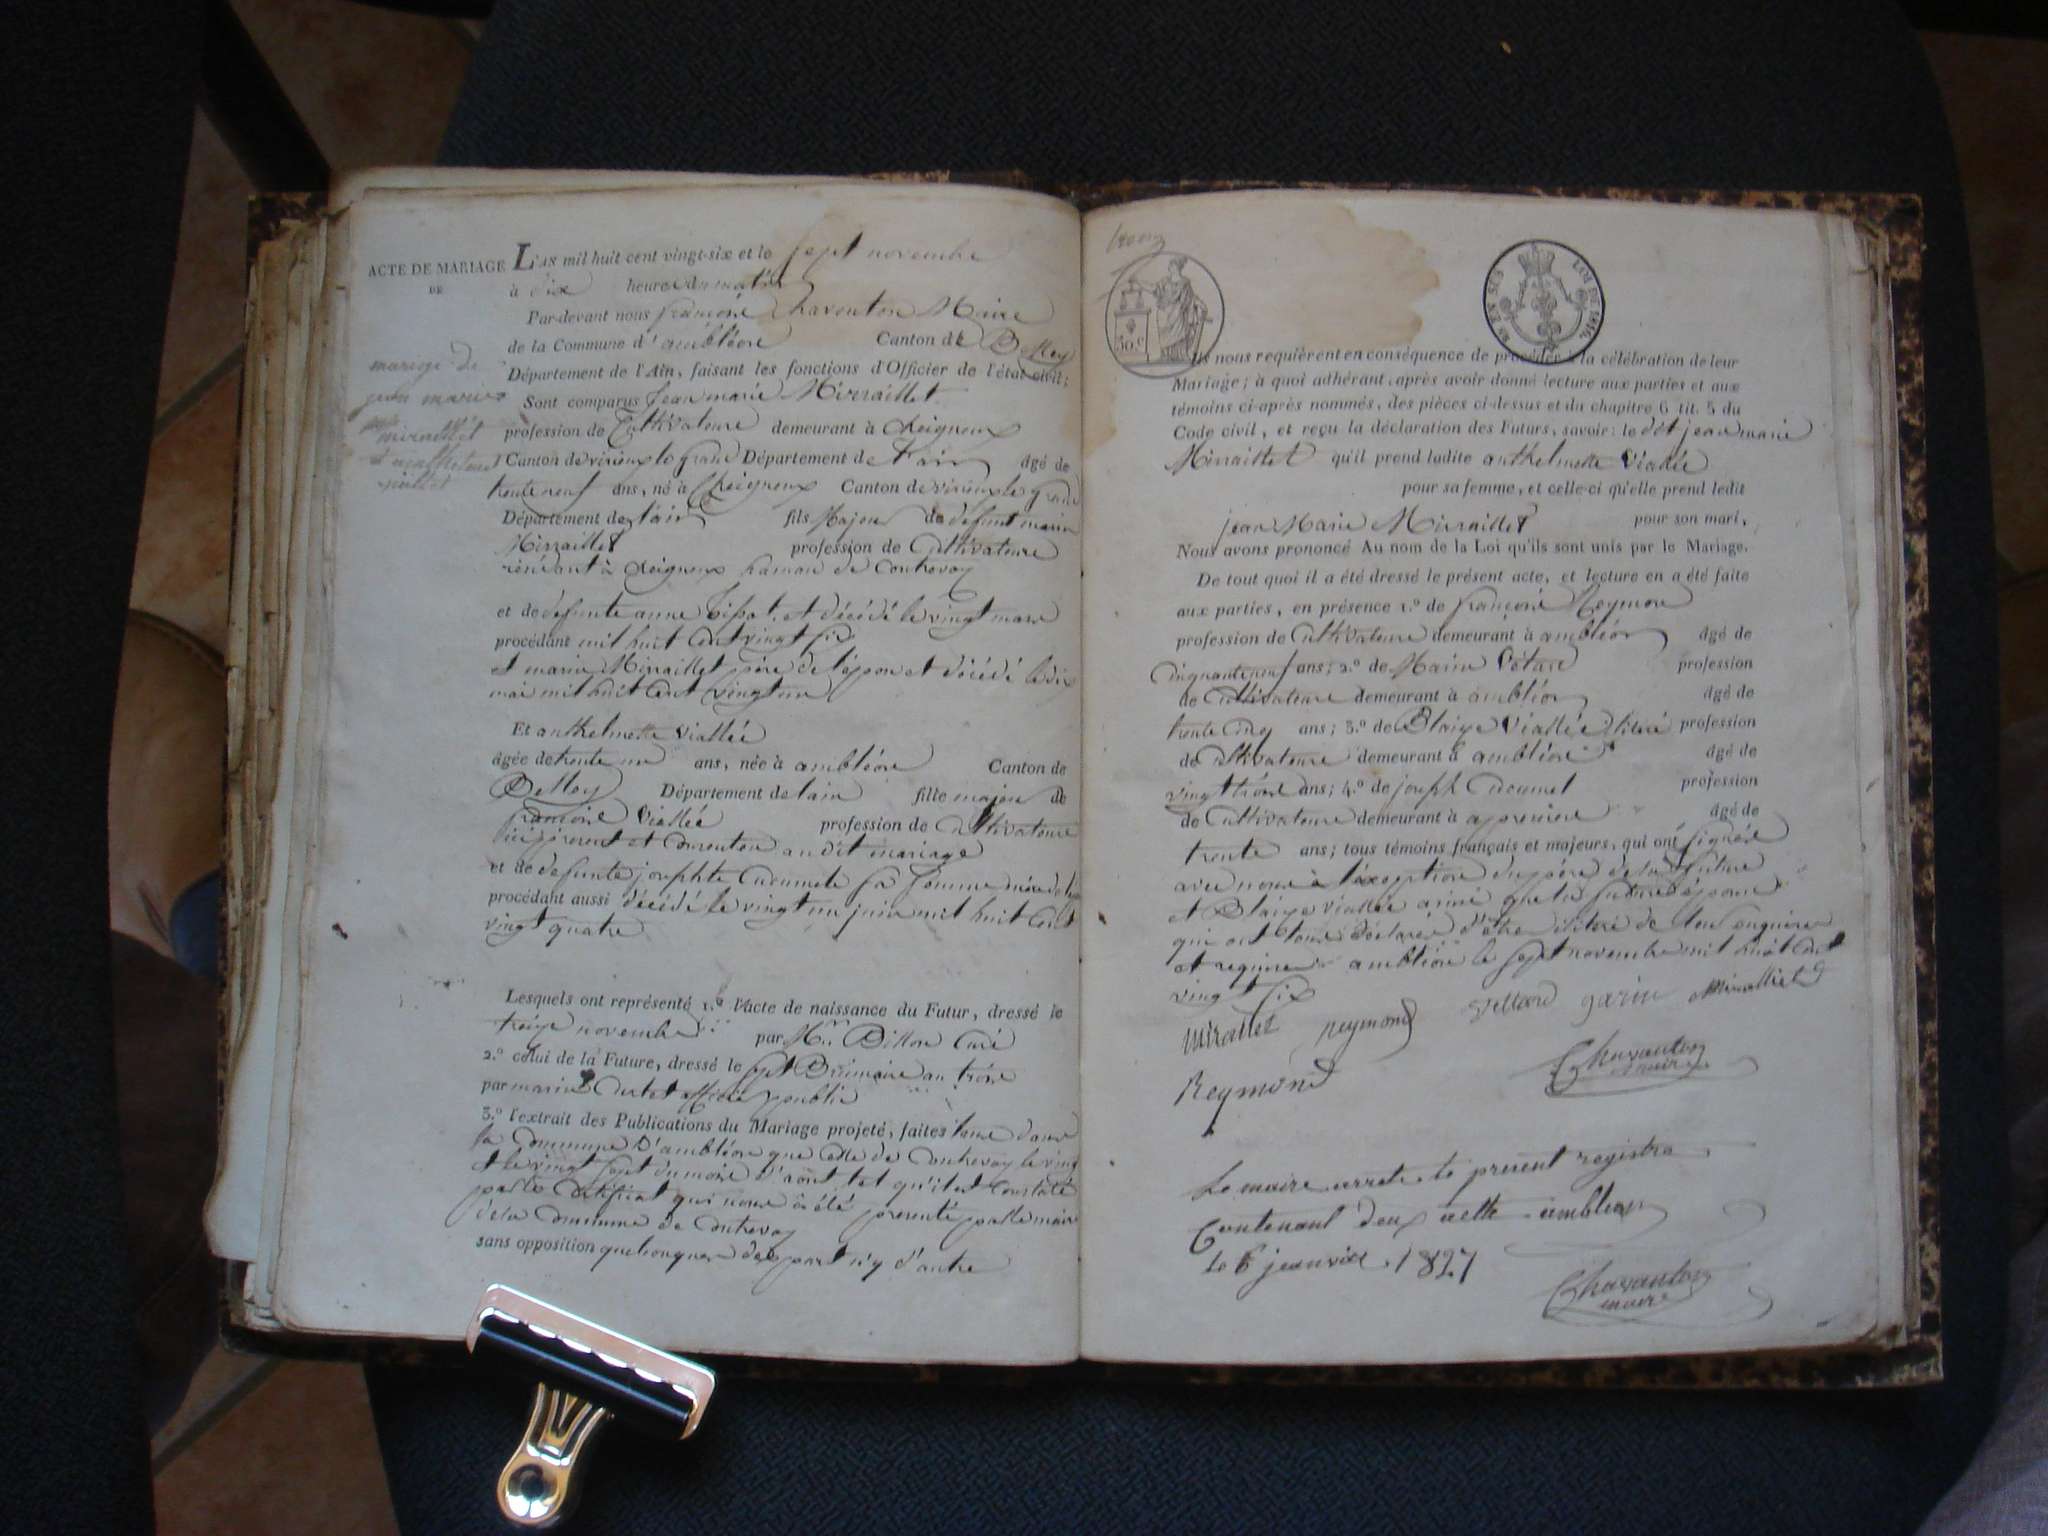 ACTE DE MARIAGE
DE
mariage de
jean marie
mirallet
L'AN mil huit cent vingt-six et le sept novembre
à dix heures du matin
Par-devant nous françois Chavanton Maire
de la Commune d'ambléon Canton de Belley
Département de l'Ain, faisant les fonctions d'Officier de l'état civil;
Sont comparus Jean marie Mirraillet
profession de Cultivateur demeurant à Cheignieux
Canton de virieux le grand Département de l'ain âgé de
trente neuf ans, né à Cheignieux Canton de virieux le grand
Département de l'ain fils Majeur de defunt marin
Mirraillet profession de Cultivateur
résidant à Cheignieux hamau de Contrevoz
et de defunte anne et décédé le vingt mars
procédant mil huit Cent vingt six
et marin Mirraillet père de l'époux et décédé le dix
mai mil huit Cent vingt un
Et anthelmette Viallée
âgée de trente un ans, née à ambléon Canton de
Belley Département de lain fille majeure de
françois Viallée profession de Cultivateur
ici présent et Consentan au dit mariage
et de defunte josephte Cucumete sa femme mère de
procédant aussi décédé le vingt un juin mil huit Cent
vingt quatre
Lesquels ont représenté 1.º l'acte de naissance du Futur, dressé le
treize novembre par Mr. Billon Curé
2.º celui de la Future, dressé le sept Brumaire an trois
par marin officié public
3.º l'extrait des Publications du Mariage projeté, faites tans dans
la Commune d'ambléon que Celle de Contrevoz le vingt
et le vingt sept du mois d'aout, tel qu'il est Constaté
par le Certificat qui nous a été presenté par le maire
de la Commune de Contrevoz
sans opposition quelconques de part n'y d'autre
30.c
LOI DE 1816.
Ils nous requièrent en conséquence de procéder à la célébration de leur
Mariage; à quoi adhérant, après avoir donné lecture aux parties et aux
témoins ci-après nommés, des pièces ci-dessus et du chapitre 6 tit. 5 du
Code civil, et reçu la déclaration des Futurs, savoir: le dit jean marie
Mirraillet qu'il prend ladite anthelmette Viallée
pour sa femme, et celle-ci qu'elle prend ledit
jean Marie Mirraillet pour son mari,
Nous avons prononcé Au nom de la Loi qu'ils sont unis par le Mariage.
De tout quoi il a été dressé le présent acte, et lecture en a été faite
aux parties, en présence 1.º de françois Reymon
profession de Cultivateur demeurant à ambléon âgé de
Cinquante neuf ans; 2.º de Marin profession
de Cultivateur demeurant à ambléon âgé de
trente Cinq ans; 3.º de Blaize Viallée profession
de Cultivateur demeurant à ambléon âgé de
vingt trois ans; 4.º de joseph Cucumet profession
de Cultivateur demeurant à apremieu âgé de
trente ans; tous témoins français et majeurs, qui ont signée
avec nous à l'exception du père de la future
et Blaize viallée ainsi que la future épouse
qui ont tous déclarée d'être de leur enquérir
et requirer ambléon le sept novembre mil huit Cent
vingt six
Mirallet Reymond garin Miralliet
Reymond Chavanton
maire
Le maire arrete le present registre
Contenant deux acttes ambléon
le 6 jeanvier 1827
Chavanton
maire